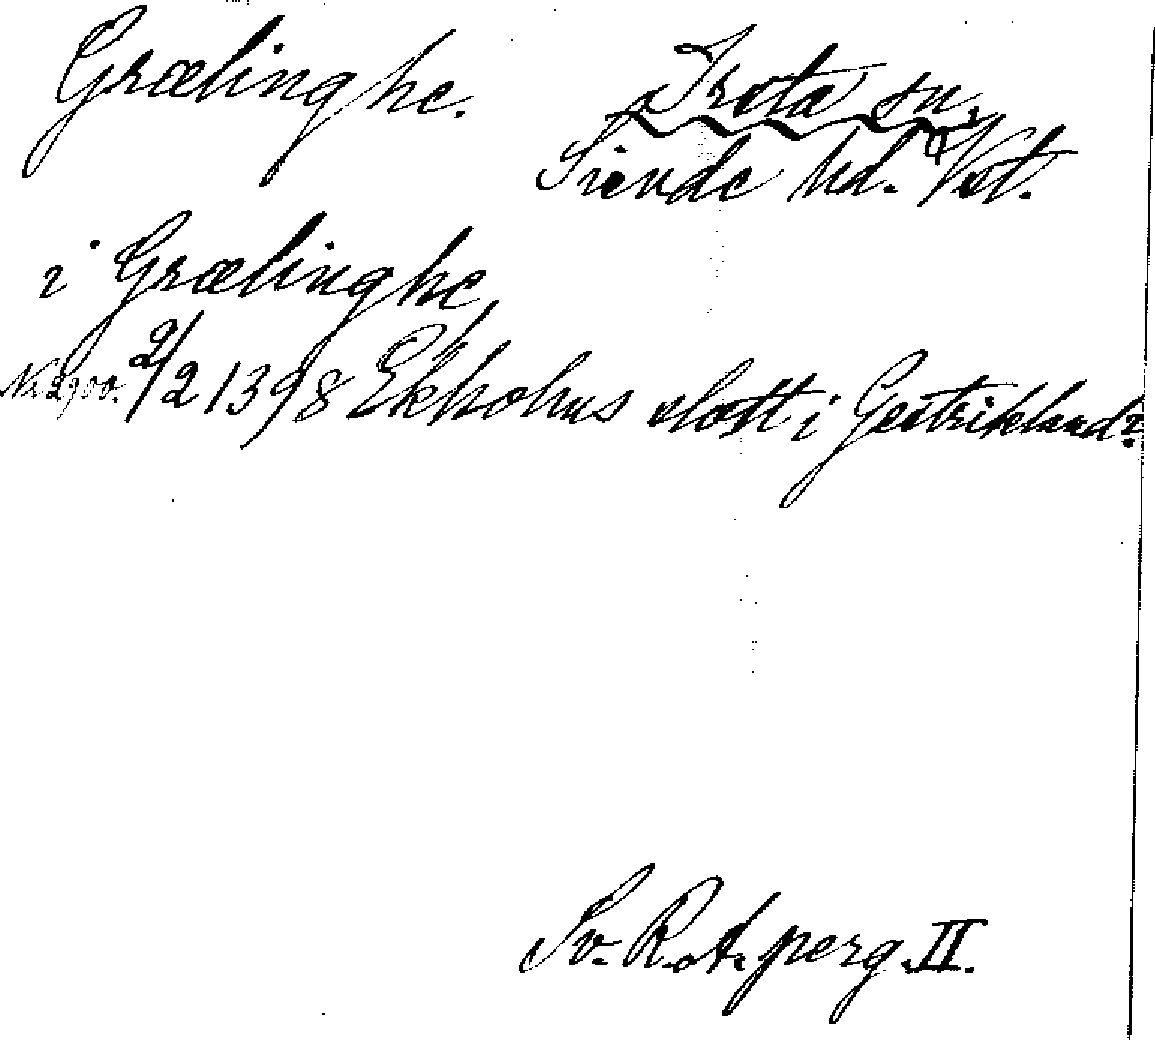 Grælinghe. Irsta sn,
Siende hd. Vst.
i Grælinghe
Nr 2900. 2/2 1398 Ekholms slott i Gestrikland?
Sv. R. A. perg. II.